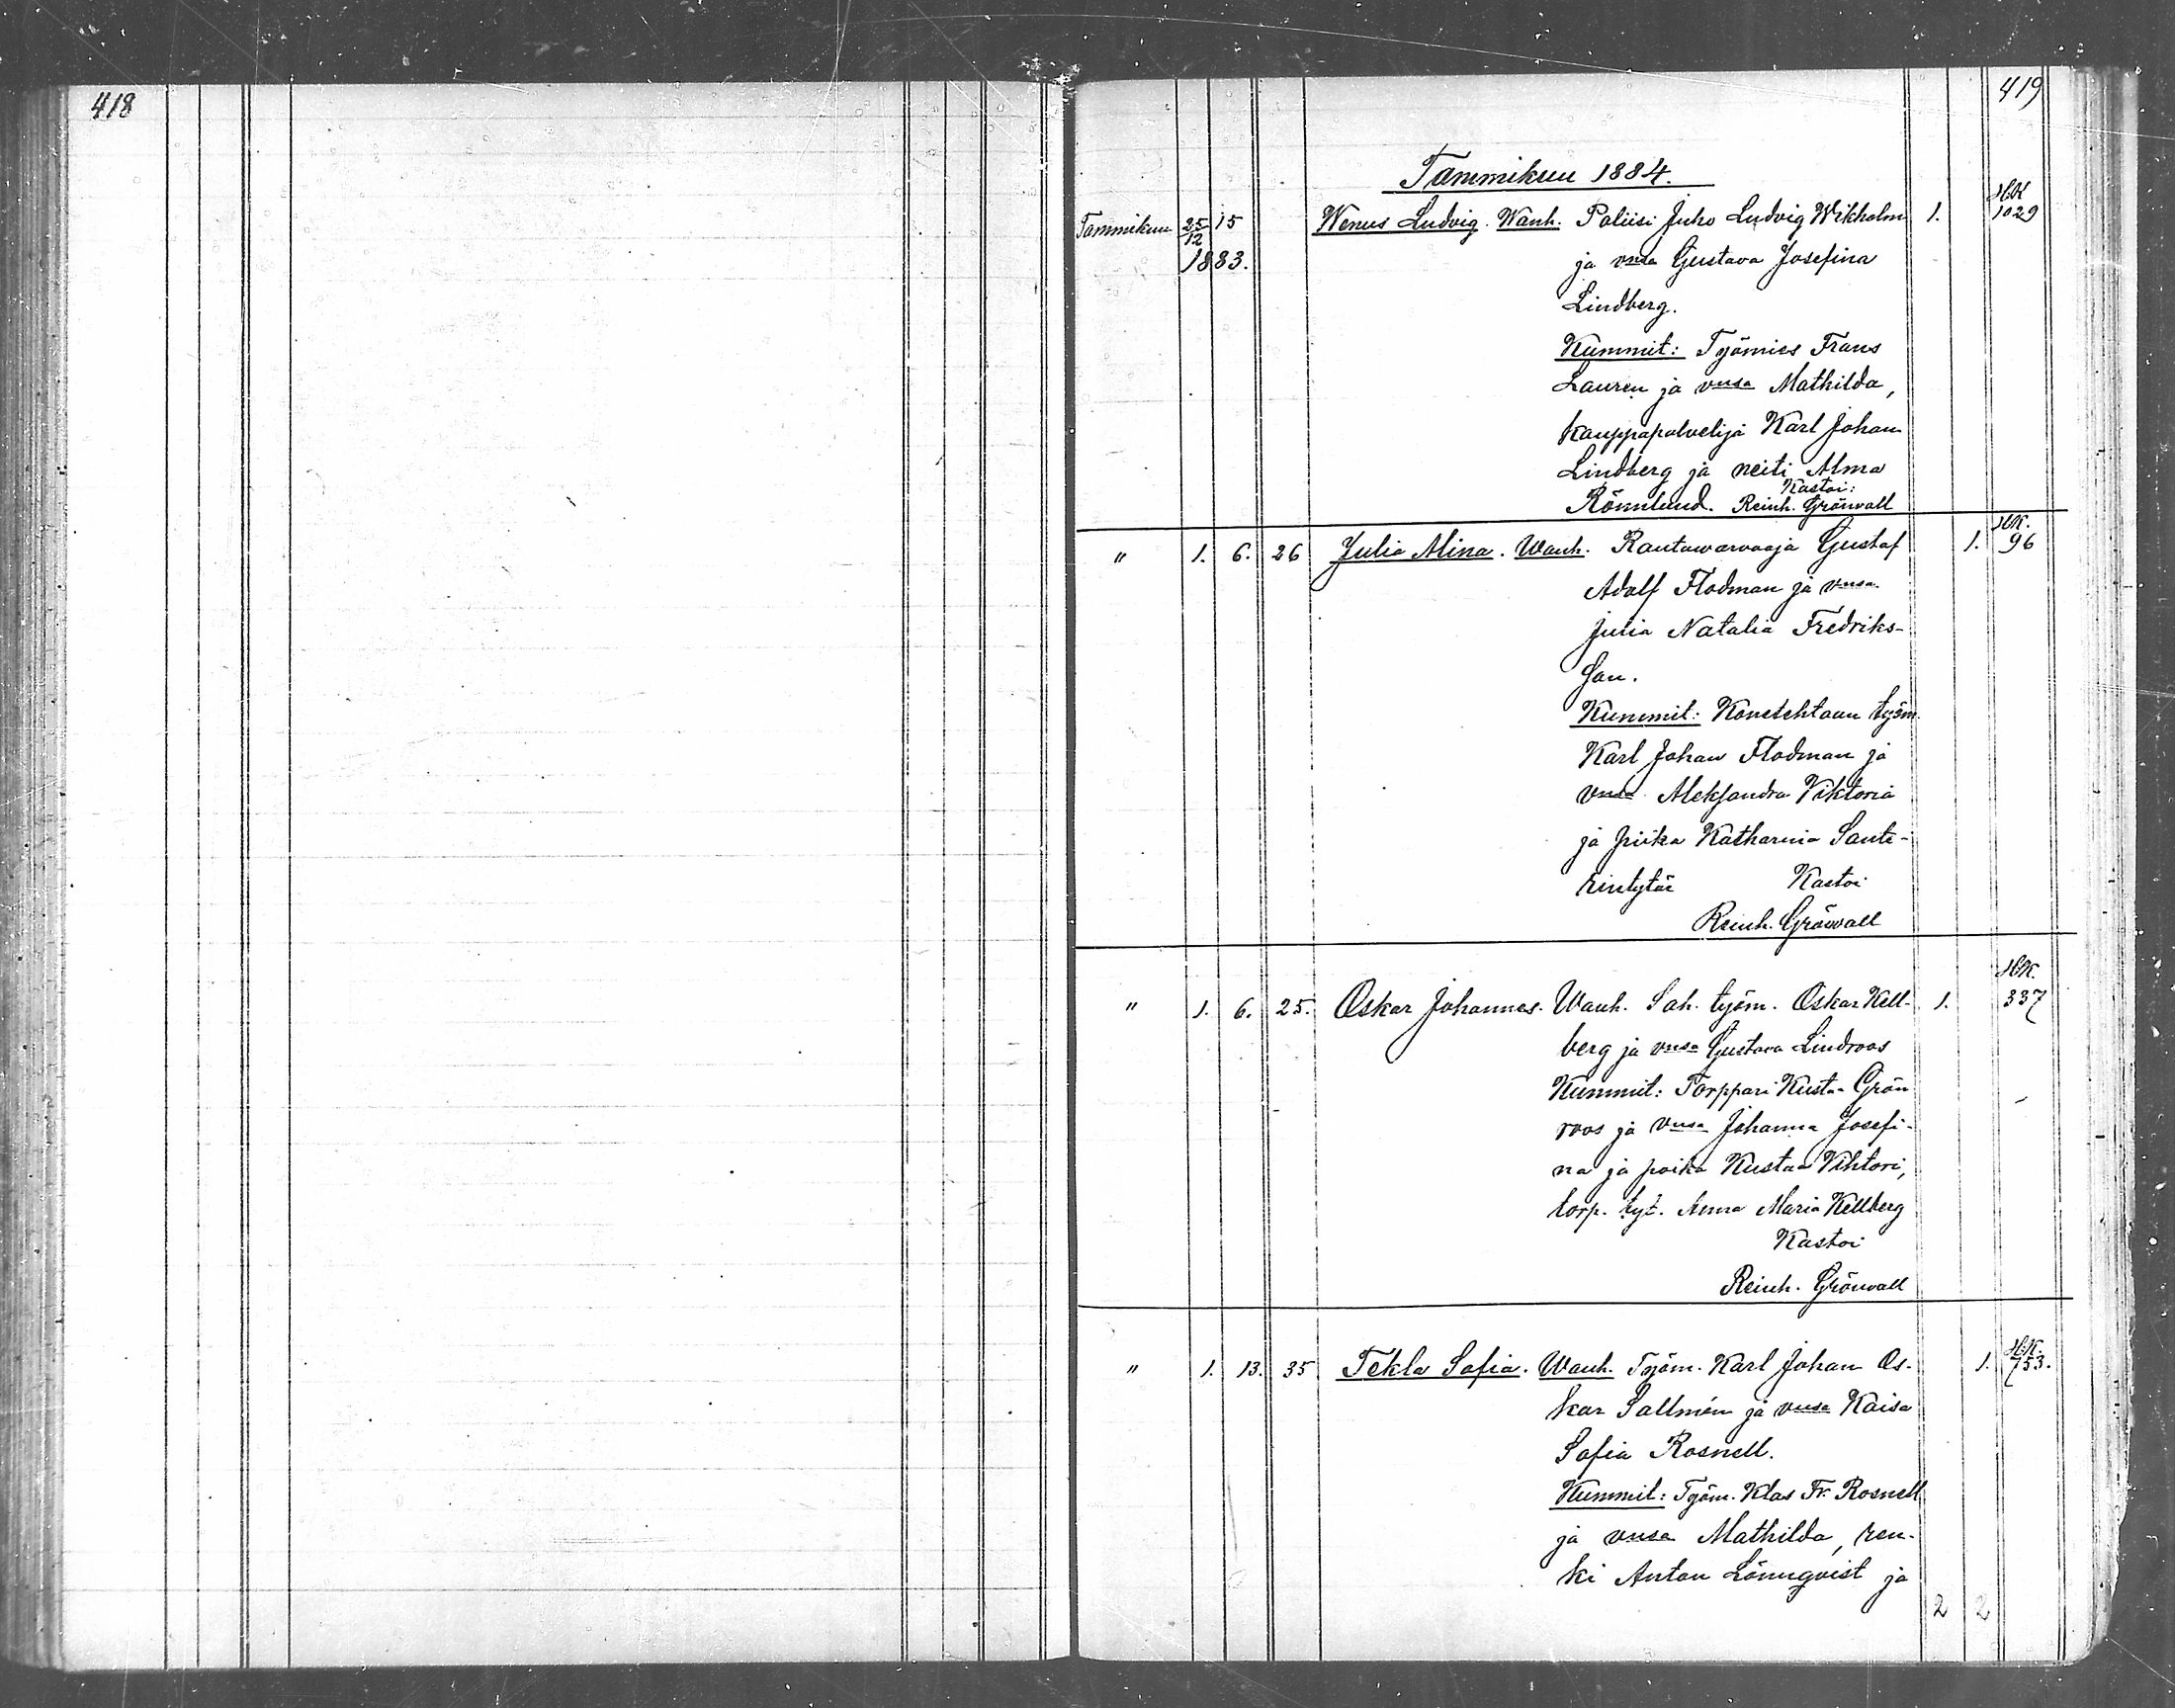 418
419
Tammikuu 1884.
Tammikuu 25/12 15 Wenus Ludvig. Wanh. Poliisi Juho Ludvig Wikholm 1. HK 1029
1883. ja vmsa Gustava Josefina
Lindberg.
Kummit: Työmies Frans
Lauren ja vmsa Mathilda,
kauppapalvelija Karl Johan
Lindberg ja neiti Alma
Rönnlund. Kastoi: Reinh. Grönvall
" 1. 6. 26 Julia Alina. Wanh. Rautawarvaaja Gustaf 1. HK. 96
Adolf Flodman ja vmsa
Julia Natalia Fredriks-
son.
Kummit: Konetehtaan työm.
Karl Johan Flodman ja
vmsa Aleksandra Viktoria
ja piika Katharina Sante-
rintytär Kastoi
Reinh. Grönvall
" 1. 6. 25. Oskar Johannes. Wanh. Sah. työm. Oskar Kell- 1. HK. 337
berg ja vmsa Gustava Lindroos
Kummit: Torppari Kusta Grön
roos ja vmsa Johanna Josefi-
na ja poika Kustaa Vihtori,
torp. tyt. Anna Maria Kellberg
Kastoi
Reinh. Grönvall
" 1. 13. 35 Tekla Sofia. Wanh. Työm. Karl Johan Os- 1. HK. 753.
kar Sallmén ja vmsa Kaisa
Sofia Rosnell.
Kummit: Työm. Klas Fr. Rosnell
ja vmsa Mathilda, ren-
ki Anton Lönnqvist ja
2 2